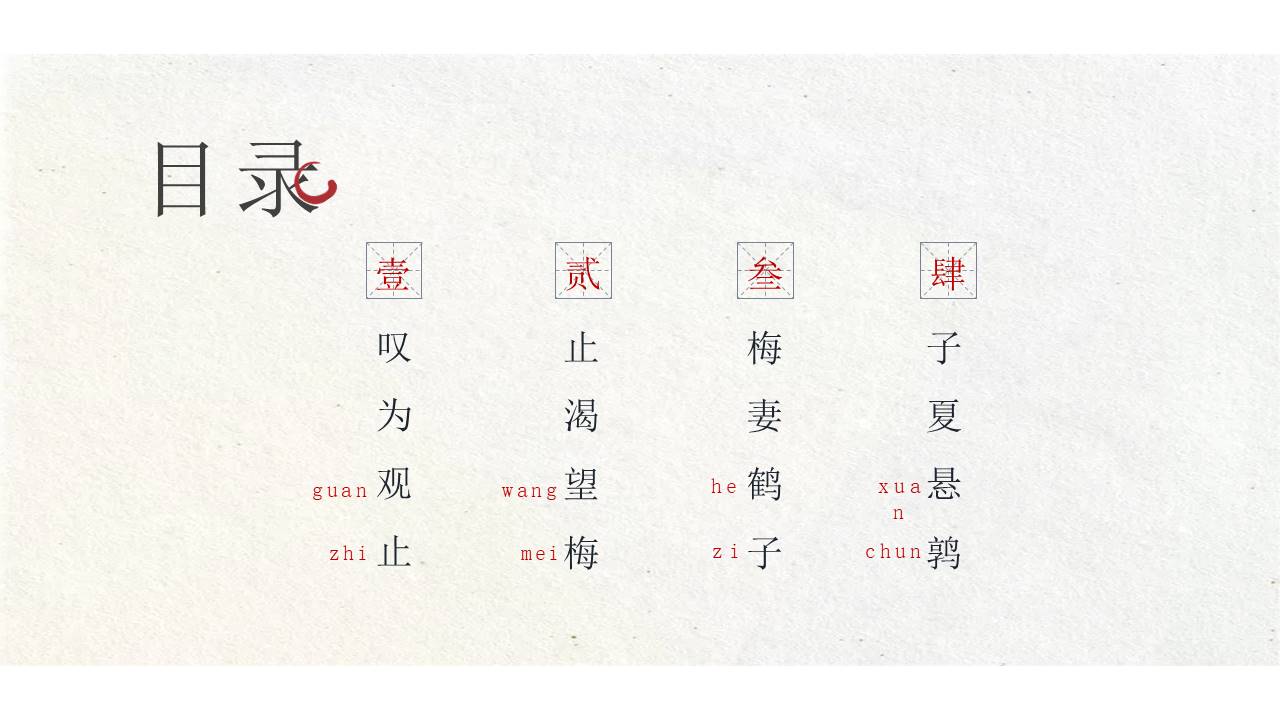 目录
壹
叹为观止
guan
zhi
贰
止渴望梅
wang
mei
叁
梅妻鹤子
he
zi
肆
子夏悬鹑
xua
n
chun